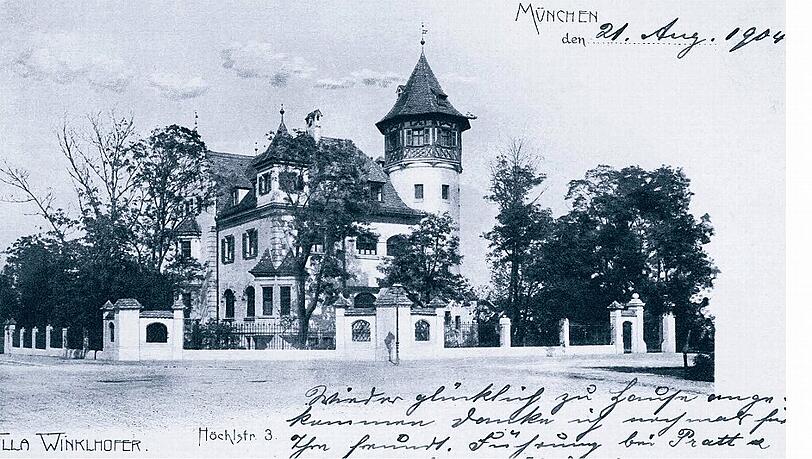 MÜNCHEN
den 21. Aug. 1904
Wieder glücklich zu Hause ange-
kommen danke ich nochmal für
Ihre freundl. Führung bei Pratt &
LLA WINKLHOFER.
Höchlstr. 3.